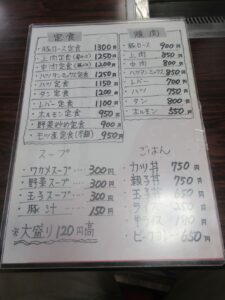 定食
・豚ロース定食 1300円
・上肉定食 1250円
・中肉定食 1200円
・ハツタンミックス定食 1250円
・ハツ定食 1200円
・タン定食 1150円
・レバー定食 1100円
・ホルモン定食 950円
・野菜炒め定食 900円
・モツ煮定食 950円
焼肉
・豚ロース 900円
・上肉 850円
・中肉 800円
・ハツタンミックス 850円
・ハツ 750円
・タン 800円
・レバー 700円
・ホルモン 550円
スープ
・ワカメスープ… 300円
・野菜スープ… 300円
・玉子スープ… 300円
・豚汁 150円
※大盛り120円高
ごはん
・カツ丼 750円
・親子丼 750円
・玉子丼
・ライス
・ビーフカレー 650円